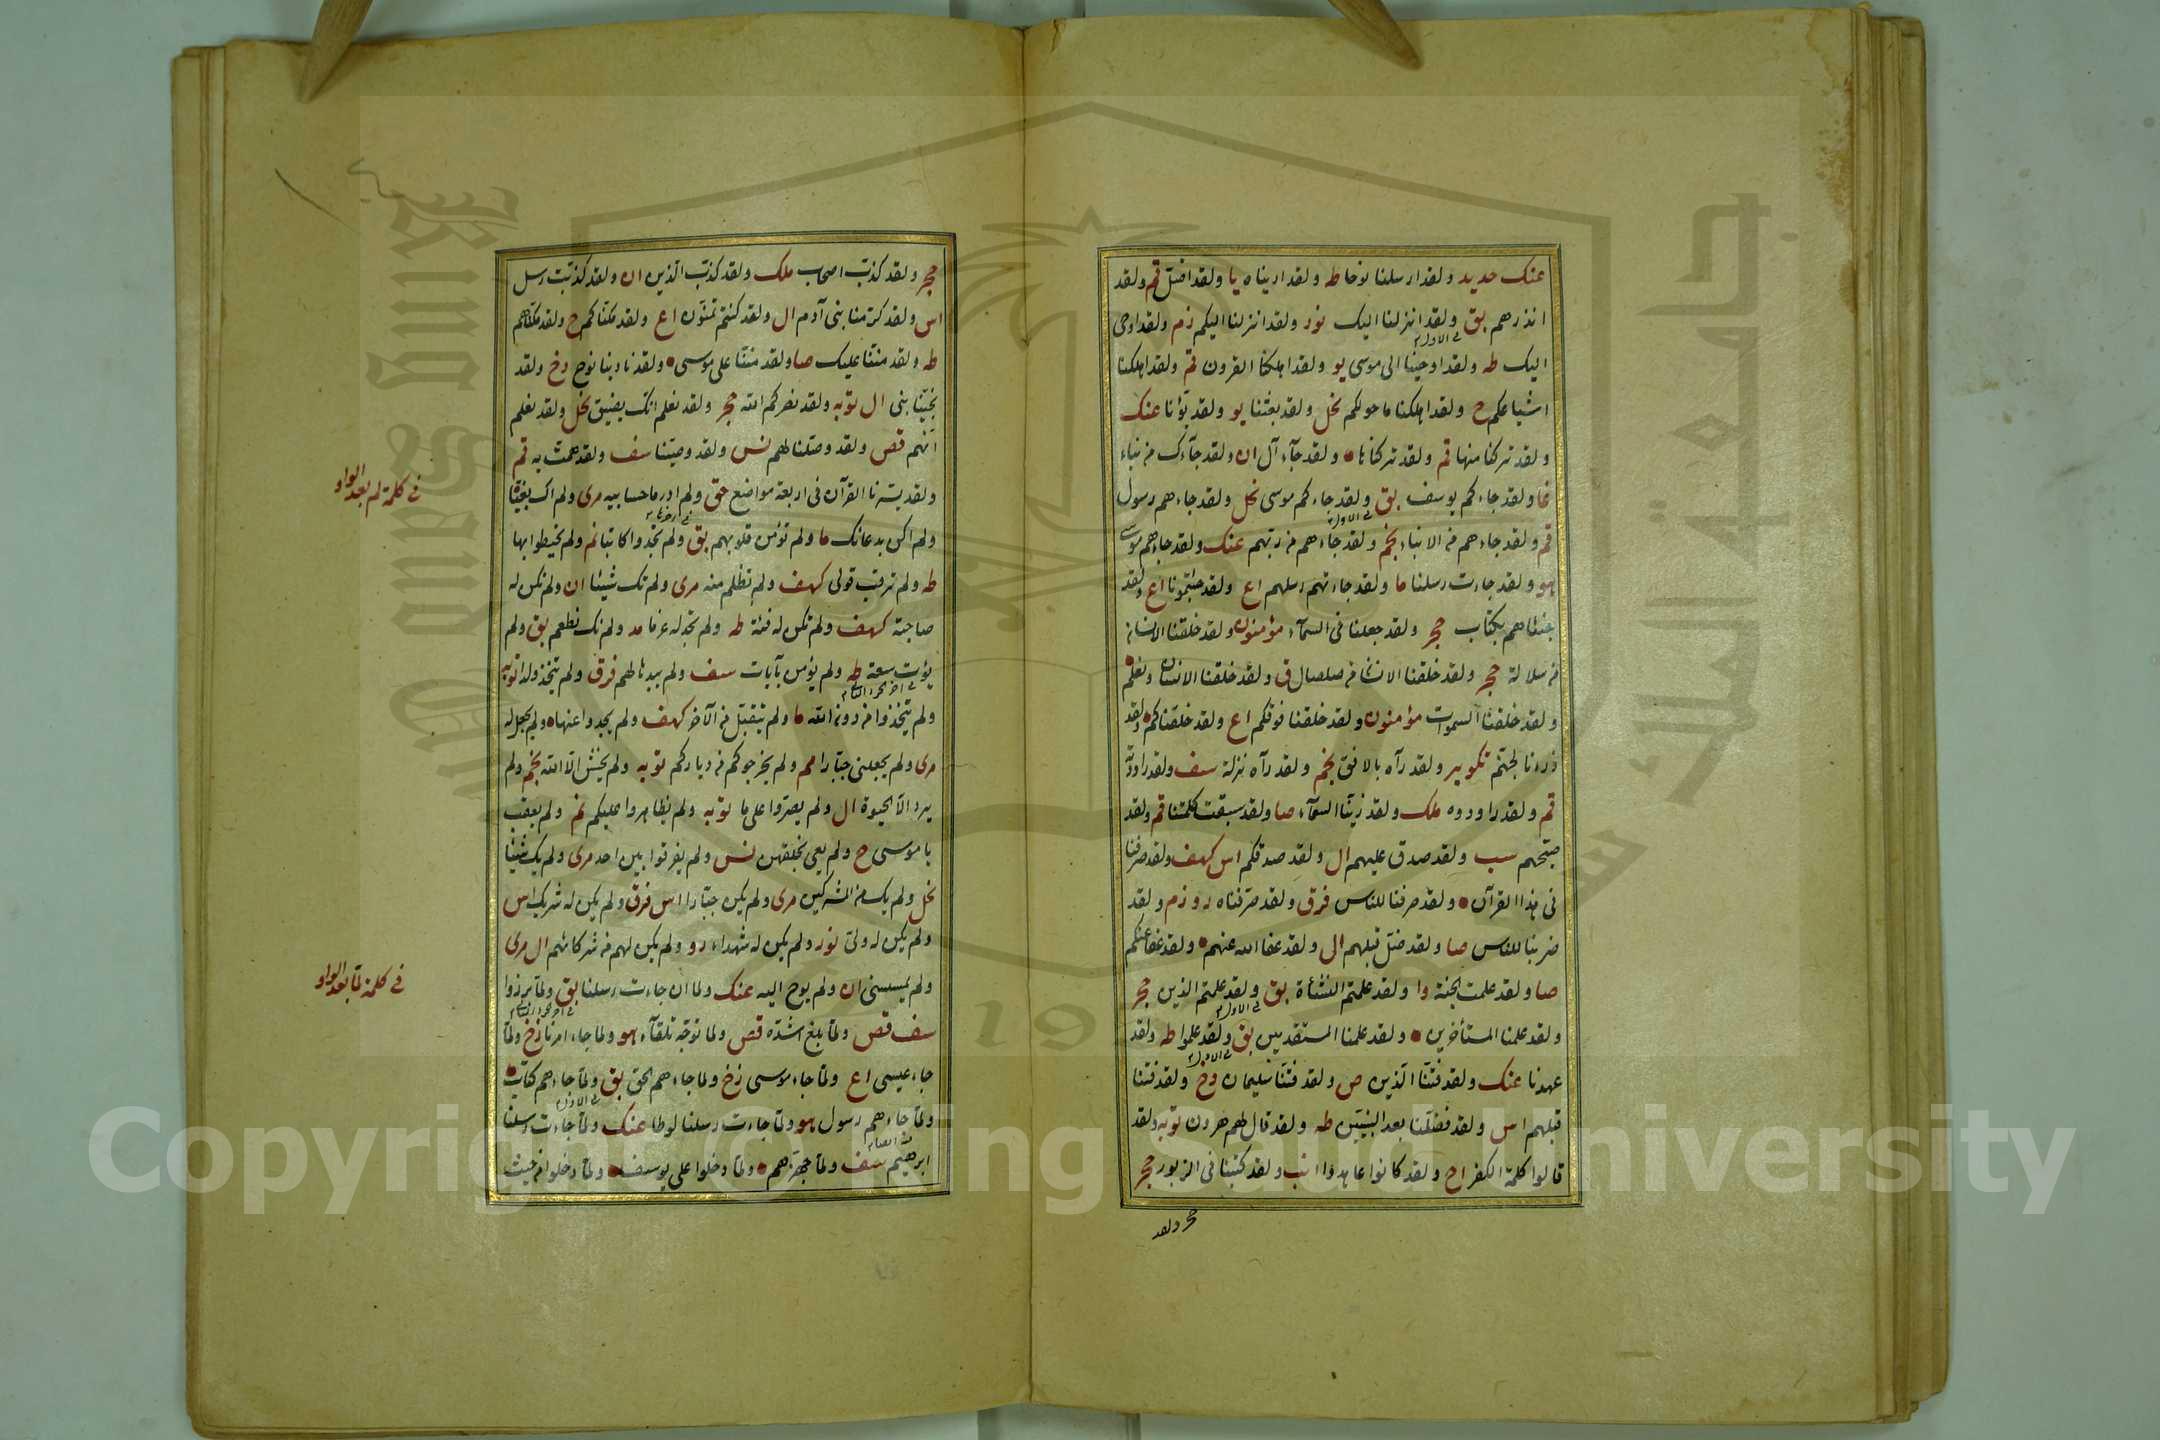 عنك حديد ولقد ارسلنا نوحا طه ولقد اريناه يا ولقد اضل قم ولقد
انذرهم بق ولقد انزلنا اليك نور ولقد انزلنا اليكم زم ولقد اوحى
اليك طه ولقد اوحينا الى موسى يو ولقد اهلكنا القرون قم ولقد اهلكنا
اشياعكم ح ولقد اهلكنا ما حولكم نحل ولقد بعثنا يو ولقد بوّانا عنك
ولقد تركنا منها قم ولقد تركناها ولقد جآء آل ان ولقد جآءك من نباء
ولقد جاءكم يوسف بق ولقد جاءكم موسى نحل ولقد جاءهم رسول
قم ولقد جاءهم من الانباء نجم ولقد جاءهم من ربهم عنك ولقد جاءهم موسى
هو ولقد جاءت رسلنا ما ولقد جاءتهم رسلهم اع ولقد جئتمونا اع ولقد
جئناهم بكتاب حجر ولقد جعلنا فى السمآء مؤمنون ولقد خلقنا الانسان
من سلالة حجر ولقد خلقنا الانسان من صلصال ق ولقد خلقنا الانسان ونعلم
ولقد خلقنا السموات مؤمنون ولقد خلقنا فوقكم اع ولقد خلقناكم ولقد
ذرءنا لجهنم تكوير ولقد رآه بالافق نجم ولقد رآه نزلة سف ولقد راودته
قم ولقد راودوه ملك ولقد زينا السمآء صا ولقد سبقت كلمتنا قم ولقد
صبحهم سب ولقد صدق عليهم ال ولقد صدقكم اس كهف ولقد صرفنا
فى هذا القرآن ولقد صرفنا للناس فرق ولقد صرفناه رو زم ولقد
ضربنا للناس صا ولقد ضل قبلهم ال ولقد عفا الله عنهم ولقد عفا عنكم
صا ولقد علمت الجنة وا ولقد علمتم النشأة بق ولقد علمتم الذين حجر
ولقد علمنا المستأخرين ولقد علمنا المستقدمين بق ولقد علموا طه ولقد
عهدنا عنك ولقد فتنّا الذين ص ولقد فتنّا سليمان دخ ولقد فتنا
قبلهم اس ولقد فضلنا بعد النبيّين طه ولقد قال لهم هرون توبه ولقد
قالوا كلمة الكفر اح ولقد كانوا عاهدوا انب ولقد كتبنا فى الزبور حجر
حجر ولقد
حجر ولقد كذب اصحاب ملك ولقد كذب الذين ان ولقد كذبت رسل
اس ولقد كرمنا بنى آدم ال ولقد كنتم تمنون اع ولقد مكناكم ح ولقد مكناهم
طه ولقد مننا عليك صا ولقد مننا على موسى ولقد نادينا نوح دخ ولقد
نجينا بنى ال توبه ولقد نصركم الله حجر ولقد نعلم انك يضيق نحل ولقد نعلم
انهم قص ولقد وصلنا لهم نس ولقد وصينا سف ولقد همت به قم
ولقد يسرنا القرآن فى اربعة مواضع حق ولم ادر ما حسابيه مرى ولم اك بغيا
ولم اكن بدعائك ما ولم تؤمن قلوبهم بق ولم تجدوا كاتبا نم ولم تحيطوا بها
طه ولم ترقب قولى كهف ولم تظلم منه مرى ولم تك شيئا ان ولم تكن له
صاحبة كهف ولم تكن له فئة طه ولم نجد له عزما مد ولم نك نطعم بق ولم
يؤت سعة طه ولم يؤمن بآيات سف ولم يبدها لهم فرق ولم يتخذ ولدا توبه
ولم يتخذوا من دون الله ما ولم يتقبل من الآخر كهف ولم يجدوا عنها ولم يجعل له
مرى ولم يجعلنى جبارا مم ولم يخرجوكم من دياركم توبه ولم يخش الا الله نجم ولم
يرد الا الحيوة ال ولم يصروا على ما توبه ولم يظاهروا عليكم نم ولم يعقب
يا موسى ح ولم يعى بخلقهن نس ولم يفرقوا بين احد مرى ولم يك شيئا
نحل ولم يك من المشركين مرى ولم يكن جبارا اس فرق ولم يكن له شريك اس
ولم يكن له ولىّ نور ولم يكن له شهداء رو ولم يكن لهم من شركائهم ال مرى
ولم يمسسنى ان ولم يوح اليه عنك ولما ان جاءت رسلنا بق ولما برزوا
سف قص ولما بلغ اشده قص ولما توجه تلقآء هو ولما جاء امرنا زخ ولما
جاء عيسى اع ولما جاء موسى زخ ولما جاءهم الحق بق ولما جاءهم كتاب
ولما جاءهم رسول هو ولما جاءت رسلنا لوطا عنك ولما جاءت رسلنا
ابرهيم سف ولما جهزهم ولما دخلوا على يوسف ولما دخلوا من حيث
فى كلمة لم بعد الواو
فى كلمة لما بعد الواو
King Saud University
جامعة الملك سعود
19
Copyright © King Saud University